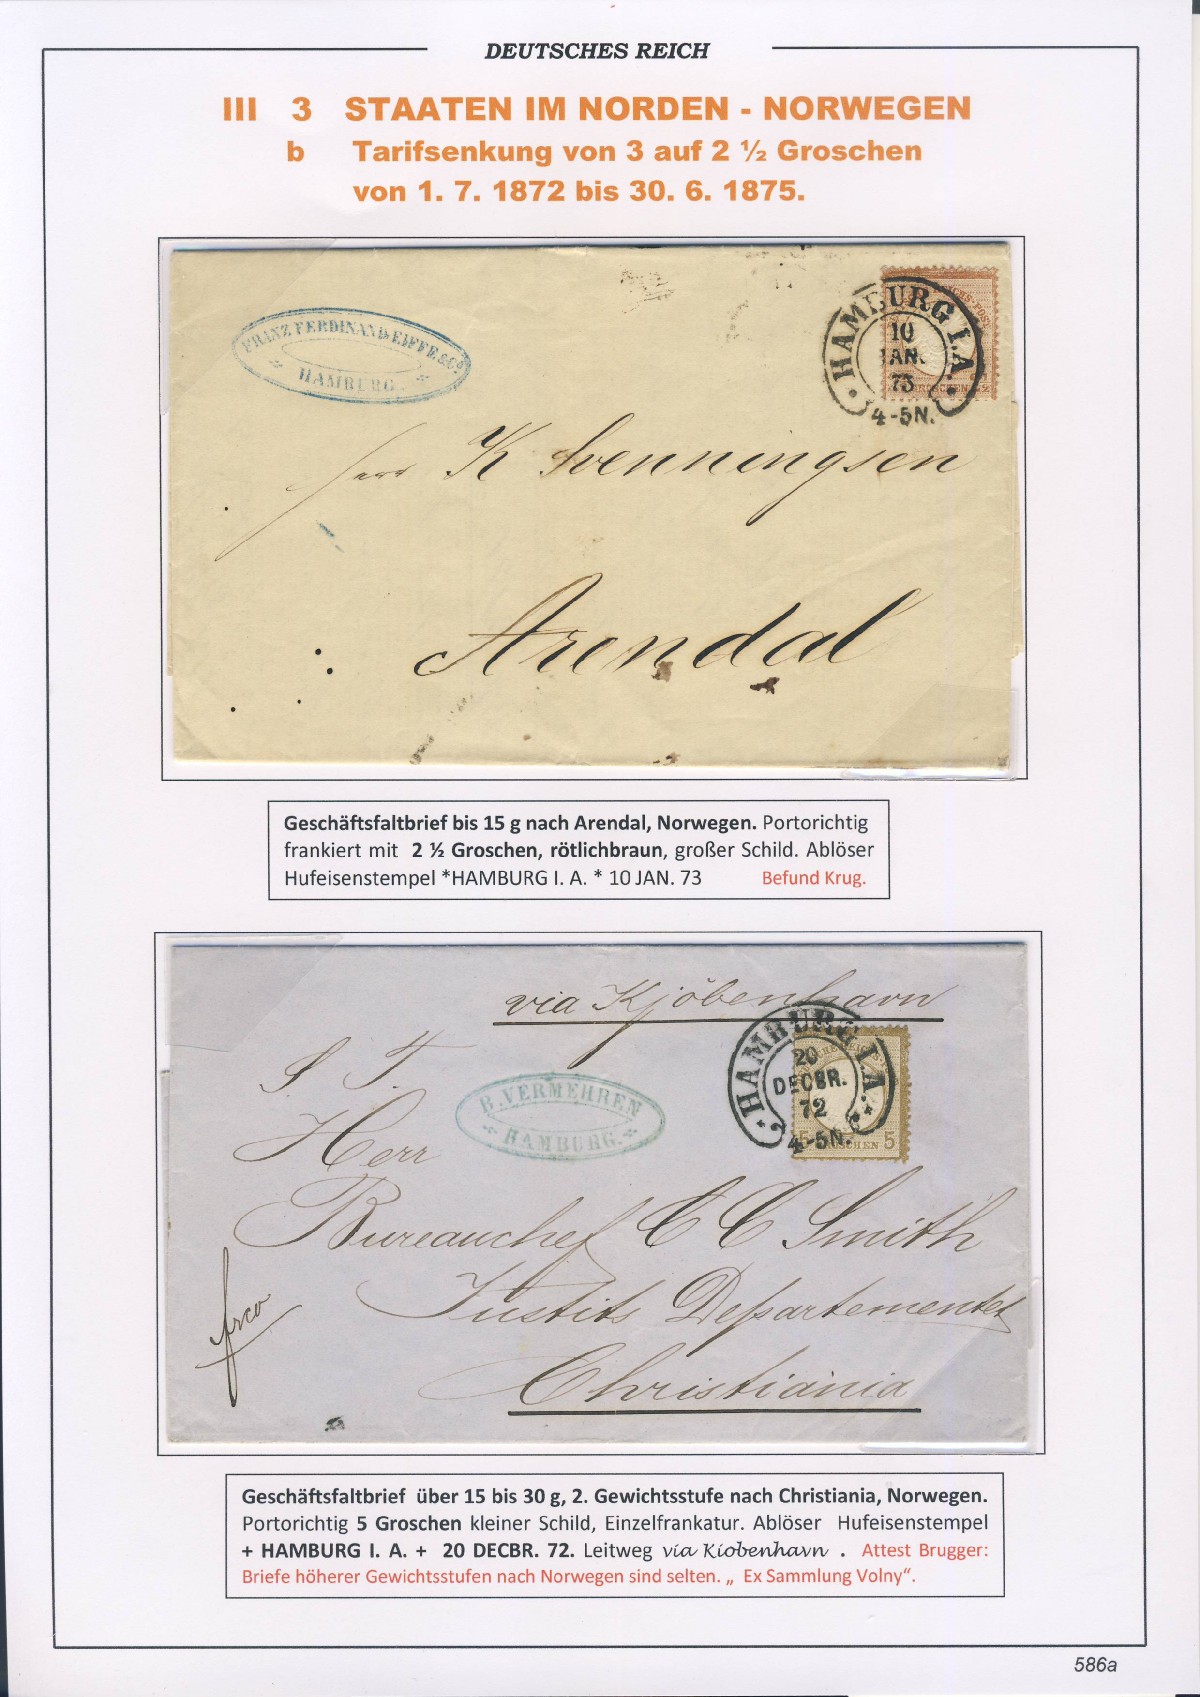 DEUTSCHES REICH
III 3 STAATEN IM NORDEN - NORWEGEN
b Tarifsenkung von 3 auf 2 ½ Groschen
von 1. 7. 1872 bis 30. 6. 1875.
FRANZ FERDINAND EIFFE & Co.
HAMBURG.
HAMBURG I.A.
10
JAN.
73
4-5N.
Herr K Svenningsen
Arendal
Geschäftsfaltbrief bis 15 g nach Arendal, Norwegen. Portorichtig
frankiert mit 2 ½ Groschen, rötlichbraun, großer Schild. Ablöser
Hufeisenstempel *HAMBURG I. A. * 10 JAN. 73 Befund Krug.
via Kjöbenhavn
HAMBURG I.A.
20
DECBR.
72
4-5N.
5
S. T.
B. VERMEHREN
HAMBURG.
Herr
Bureauchef C C Smith
Justits Departementet
frco
Christiania
Geschäftsfaltbrief über 15 bis 30 g, 2. Gewichtsstufe nach Christiania, Norwegen.
Portorichtig 5 Groschen kleiner Schild, Einzelfrankatur. Ablöser Hufeisenstempel
+ HAMBURG I. A. + 20 DECBR. 72. Leitweg via Kiobenhavn . Attest Brugger:
Briefe höherer Gewichtsstufen nach Norwegen sind selten. „ Ex Sammlung Volny“.
586a